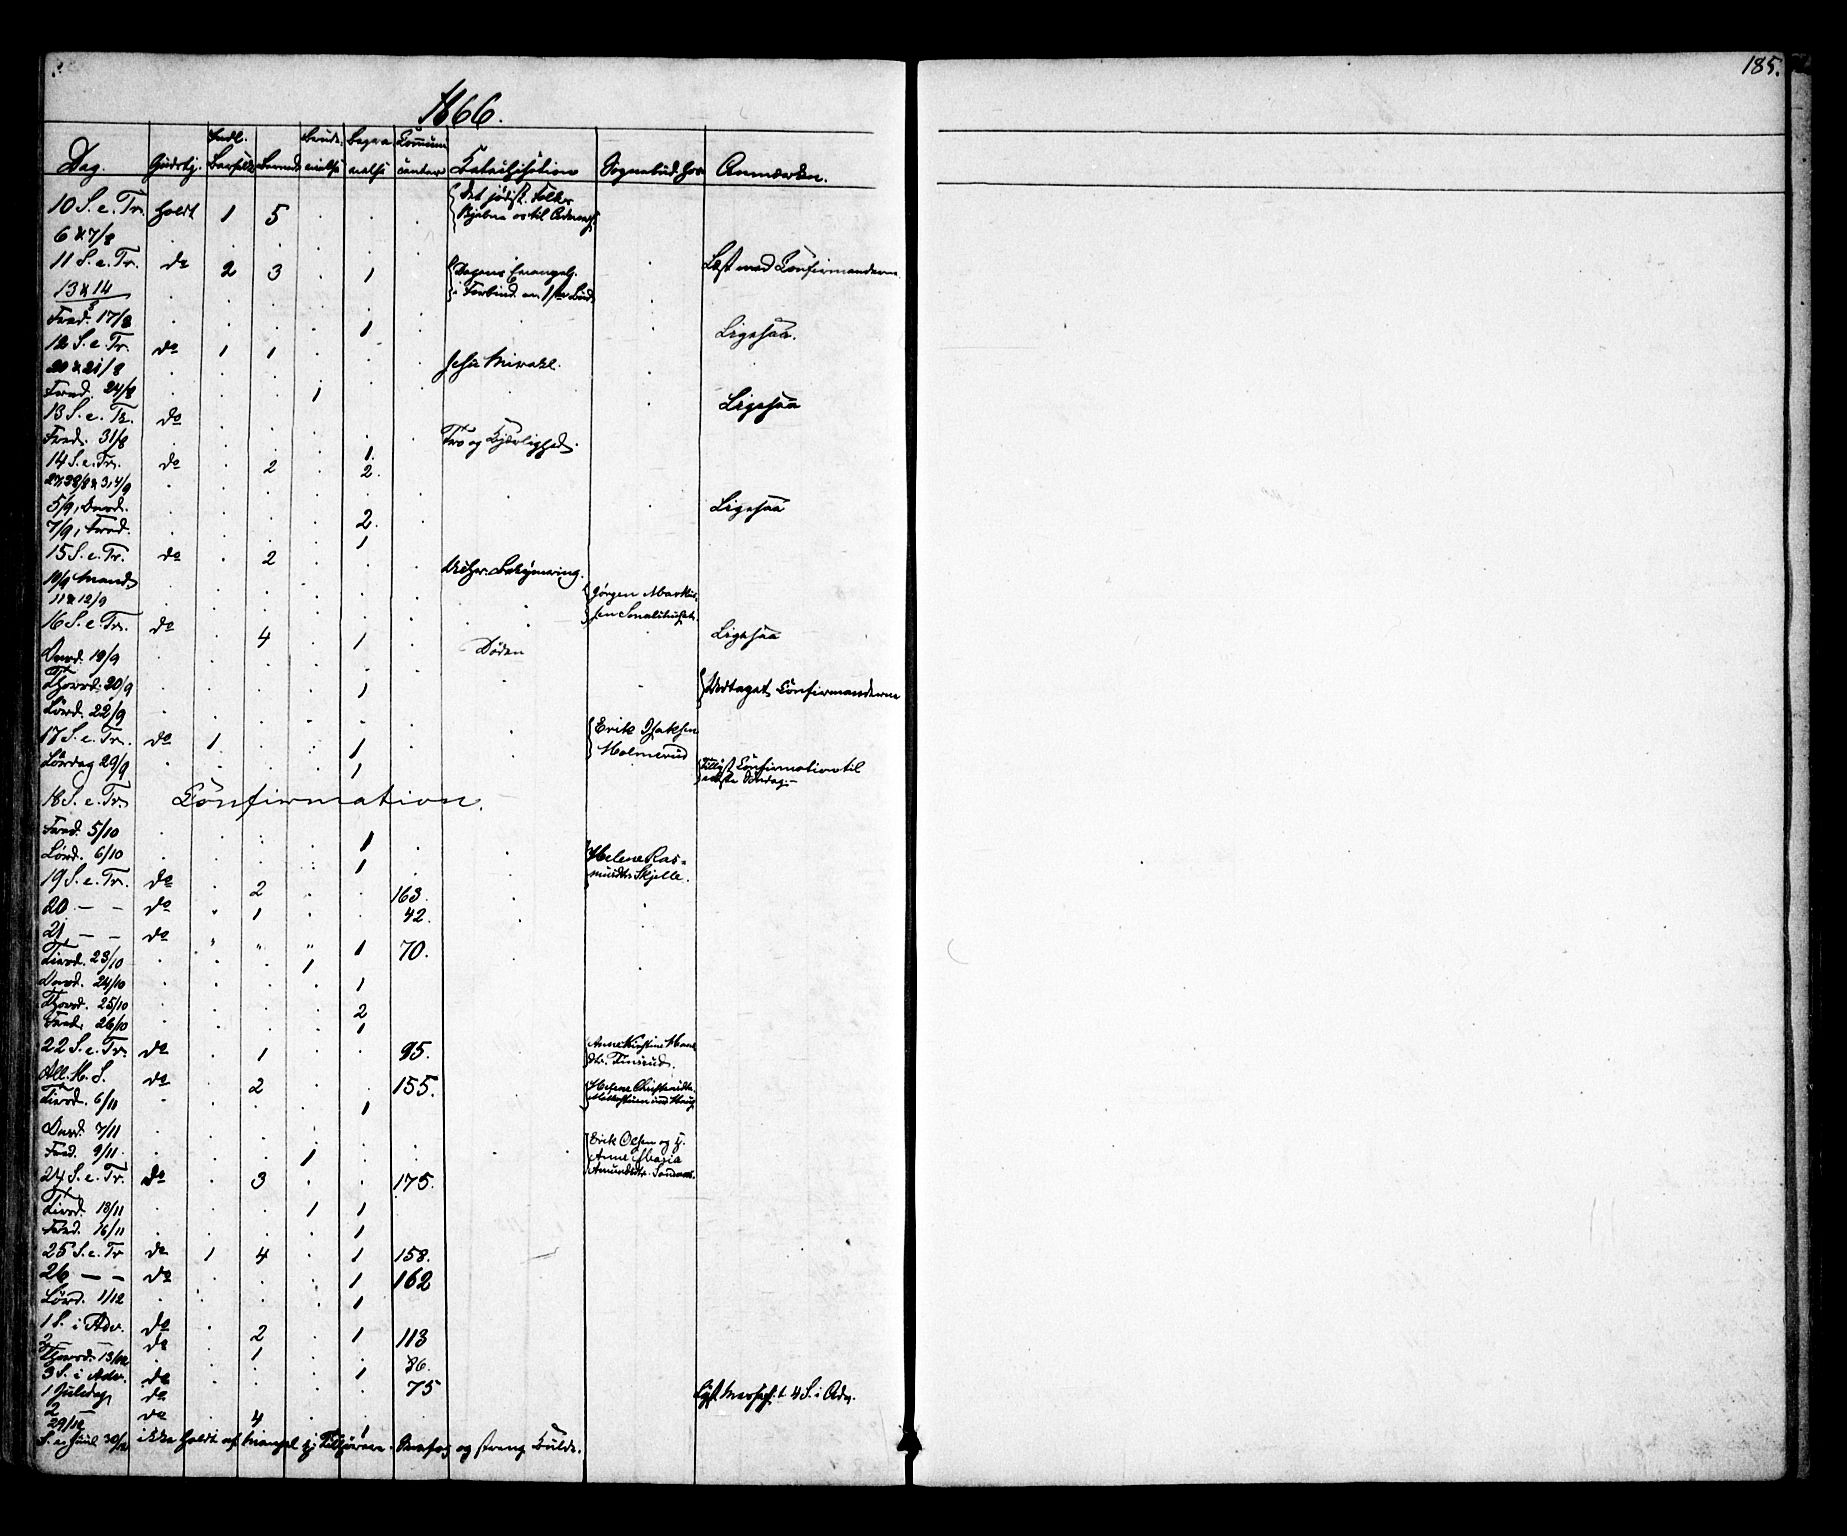 185.
1866.
Dag. Gudstj. Indl. Barseld. Barned. Brude- vielse Begra- velse Commun- icanter Catechisation Sognebud hos Anmærkn.
10 S. e. Tr. holdt 1 5 Det jødisk. Folks
6 & 7/8
11 S. e. Tr. do 2 3 1 Dagens Evangel. Læst med Confirmanderne
13 & 14/8 i Forbind. m. 1ste Bud.
Fred. 17/8 1 Ligesaa.
12 S. e. Tr. do 1 1
20 & 21/8 Jesu Mirakl.
Fred. 24/8 1 Ligesaa
13 S. e. Tr. do
Fred. 31/8 1 Tro og Kjærlighed.
14 S. e. Tr. do 2 2
27, 28/8 & 3, 4/9
5/9, Onsd. 2 Ligesaa
7/9, Fred. 1
15 S. e. Tr. do 2
10/9 Mand. Bekymring.
11 & 12/9 Jørgen Markus-
sen
16 S. e. Tr. do 4 1 Ligesaa
Onsd. 19/9 Døden
Thorsd. 20/9 1 Confirmanderne
Lørd. 22/9
17 S. e. Tr. do 1 1 Erik Isaksen
Lørdag 29/9 1 Holmerud
Tillyst Confirmation til
næste Søndag.
18 S. e. Tr. Confirmation.
Fred. 5/10 1
Lørd. 6/10 1 Helene Ras-
19 S. e. Tr. do 2 163. mundtr. Skjelle.
20 — — do 1 42.
21 — — do " " " 1 70.
Tirsd. 23/10 1
Onsd. 24/10 1
Thorsd. 25/10 2
Fred. 26/10 1
22 S. e. Tr. do 1 95. Anne Kirstine
All. H. S. do 2 155. Helene
Tirsd. 6/11 1
Onsd. 7/11 Erik Olsen og
Fred. 9/11 1 Anne Maria
24 S. e. Tr. do 3 175. Amundsdtr.
Tirsd. 13/11 1 1
Fred. 16/11 1
25 S. e. Tr. do 1 4 1 158.
26 — — do 1 162
Lørd. 1/12 1
1 S. i Adv. do 2 1 113
2 — do 1 86.
Thorsd. 13/12 1
3 S. i Adv. do 75
1 Juledag do Lyst t. 4 S. i Adv.
2 — do 4
29/12 1
S. e. Juul 30/12 ikke holdt af Mangel Tilhørere. Snefog og streng Kulde.